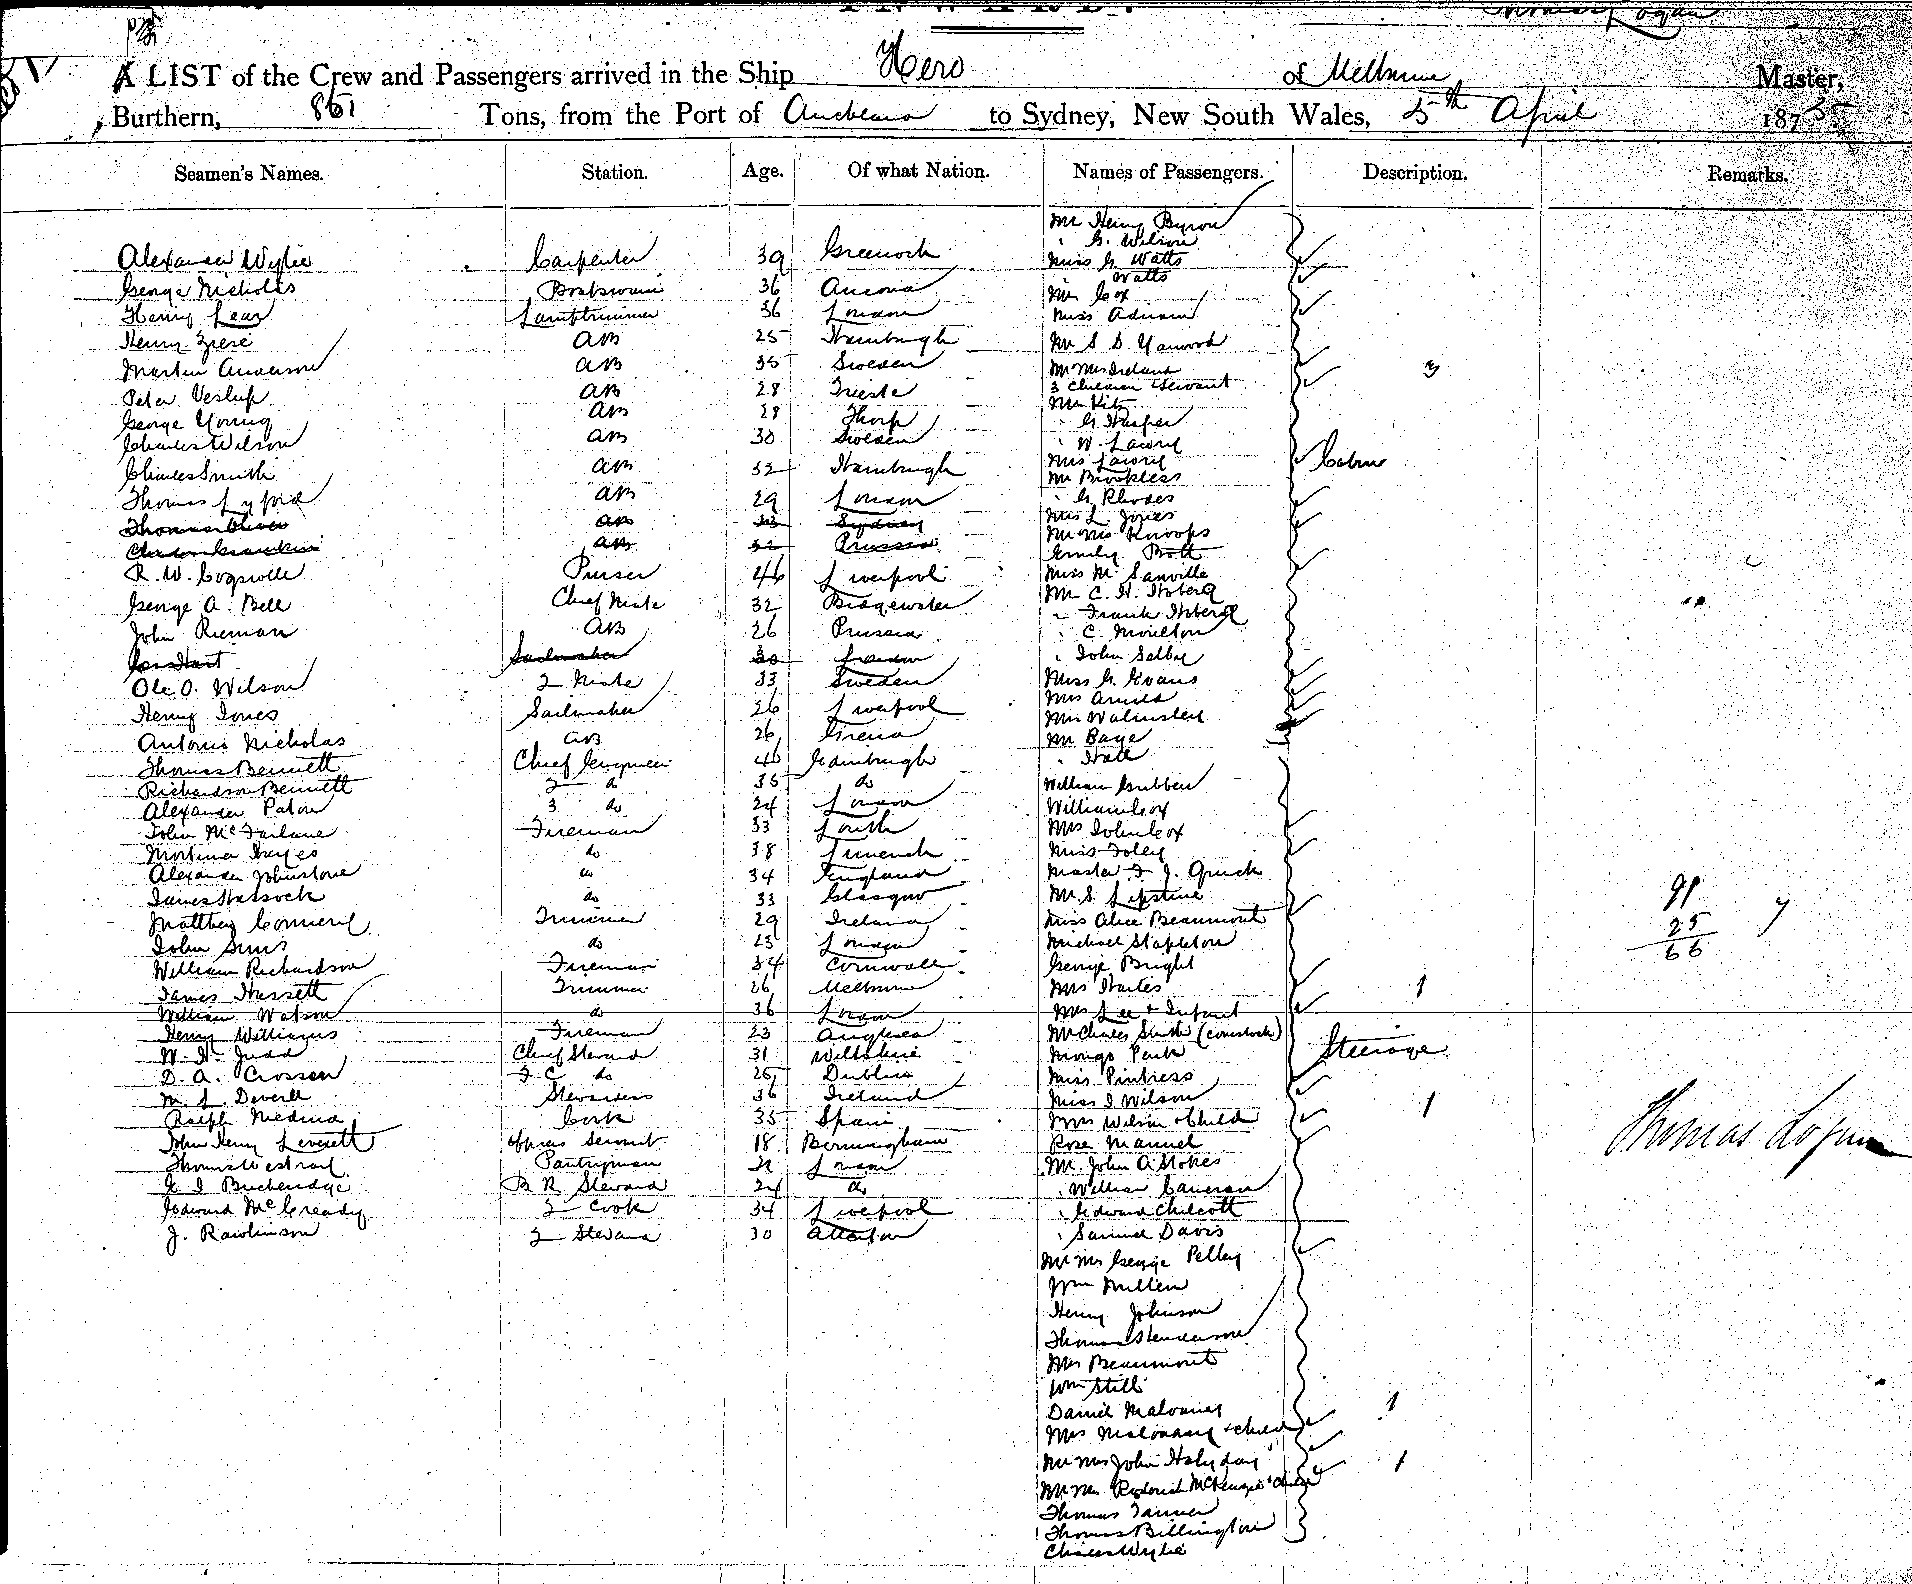 INWARD.
Thomas Logan
A LIST of the Crew and Passengers arrived in the Ship Hero of Melbourne Master,
Burthern, 861 Tons, from the Port of Auckland to Sydney, New South Wales, 5th April 1875
Seamen's Names. Station. Age. Of what Nation. Names of Passengers. Description. Remarks.
Mr Henry Byron
" G. Wilson
Alexander Wylie Carpenter 39 Greenock Miss G Watts
" Watts
George Nicholas Boatswain 36 Ancona Mr Cox
Henry Lear Lamptrimmer 36 London Miss
Henry AB 25 Hamburgh Mr S D
Martin Anderson AB 35 Sweden Mr Mrs Ireland 3
3 Children Servant
Peter AB 28 Trieste Mr
George Young AB 28 " G Harper
Charles Wilson AB 30 Sweden " W. Lawry
Charles Smith AB 32 Hamburgh Mrs Lawry Cabin
Mr Brookless
Thomas AB 29 London " G Rhodes
Thomas AB 33 Sydney Miss L. Jones
AB 32 Prussia Mr Mrs Knoops
Emily Bott
R. W. Purser 46 Liverpool Miss M Sanville
George A. Bell Chief Mate 32 Bridgewater Mr C. H.
" Frank
John Rieman AB 26 Prussia " C. Moulton
Sailmaker 30 London " John Selby
Ole O. Wilson 2 Mate 33 Sweden Miss G. Evans
Mrs Arnold
Henry Jones Sailmaker 26 Liverpool Mrs Walmsley
Antonio Nicholas AB 26 Mr Baye
Thomas Bennett Chief Engineer 46 Edinburgh " Hall
Richardson Bennett 2 do 35 do William Gubben
Alexander Paton 3 do 24 London William Cox
John McFarlane Fireman 33 Louth Mrs John Cox
Mortimer Hayes do 38 Limerick Miss Foley
Alexander Johnstone do 34 England Master F J.
James Hassock do 33 Glasgow Mr S.
Matthew Trimmer 29 Ireland Miss Alice Beaumont
John Sims do 23 London Michael Stapleton
William Richardson Fireman 34 Cornwall George Bright
James Hassett Trimmer 26 Melbourne Mrs 1
William Watson do 36 London Mrs Lee + Infant
Henry Williams Fireman 23 Anglesea Mr Charles Smith
W. H. Judd Chief Steward 31 Wiltshire Mungo Park Steerage
D. A. Crossen F C do 26 Dublin Miss Pintress
M. L. Deverell Stewardess 36 Ireland Miss I Wilson
Ralph Medina Cook 35 Spain Mrs Wilson + Child 1
John Henry Leverett Officers Servant 18 Birmingham Rose Manuel
Thomas Westrail Pantryman London Mr John A Stokes
G I Buckeridge B R Steward 24 do " William Cameron
Edward McCready 2 Cook 34 Liverpool " Edward Chilcott
J. Rawlinson 2 Steward 30 " Samuel Davis
Mr Mrs George Pelley
Wm Mullen
Henry Johnson
Thomas Henderson
Mrs Beaumont
Wm Still
Daniel Maloney
Mrs Maloney + child 1
Mr Mrs John Halyday
Mr Mrs Roderick McKenzie + child 1
Thomas Tanner
Thomas Billington
Charles Wylie
91
25
66
Thomas Logan